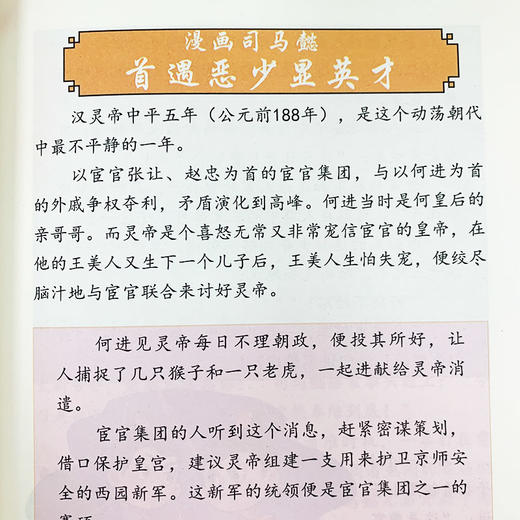 漫画司马懿
首遇恶少显英才
汉灵帝中平五年（公元前188年），是这个动荡朝代
中最不平静的一年。
以宦官张让、赵忠为首的宦官集团，与以何进为首
的外戚争权夺利，矛盾演化到高峰。何进当时是何皇后的
亲哥哥。而灵帝是个喜怒无常又非常宠信宦官的皇帝，在
他的王美人又生下一个儿子后，王美人生怕失宠，便绞尽
脑汁地与宦官联合来讨好灵帝。
何进见灵帝每日不理朝政，便投其所好，让
人捕捉了几只猴子和一只老虎，一起进献给灵帝消
遣。
宦官集团的人听到这个消息，赶紧密谋策划，
借口保护皇宫，建议灵帝组建一支用来护卫京师安
全的西园新军。这新军的统领便是宦官集团之一的